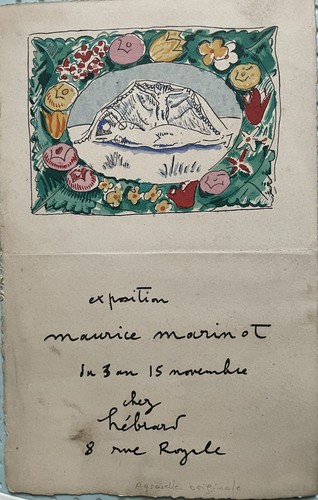 exposition
maurice marinot
du 3 au 15 novembre
chez
hébrard
8 rue Royale
Aquarelle originale